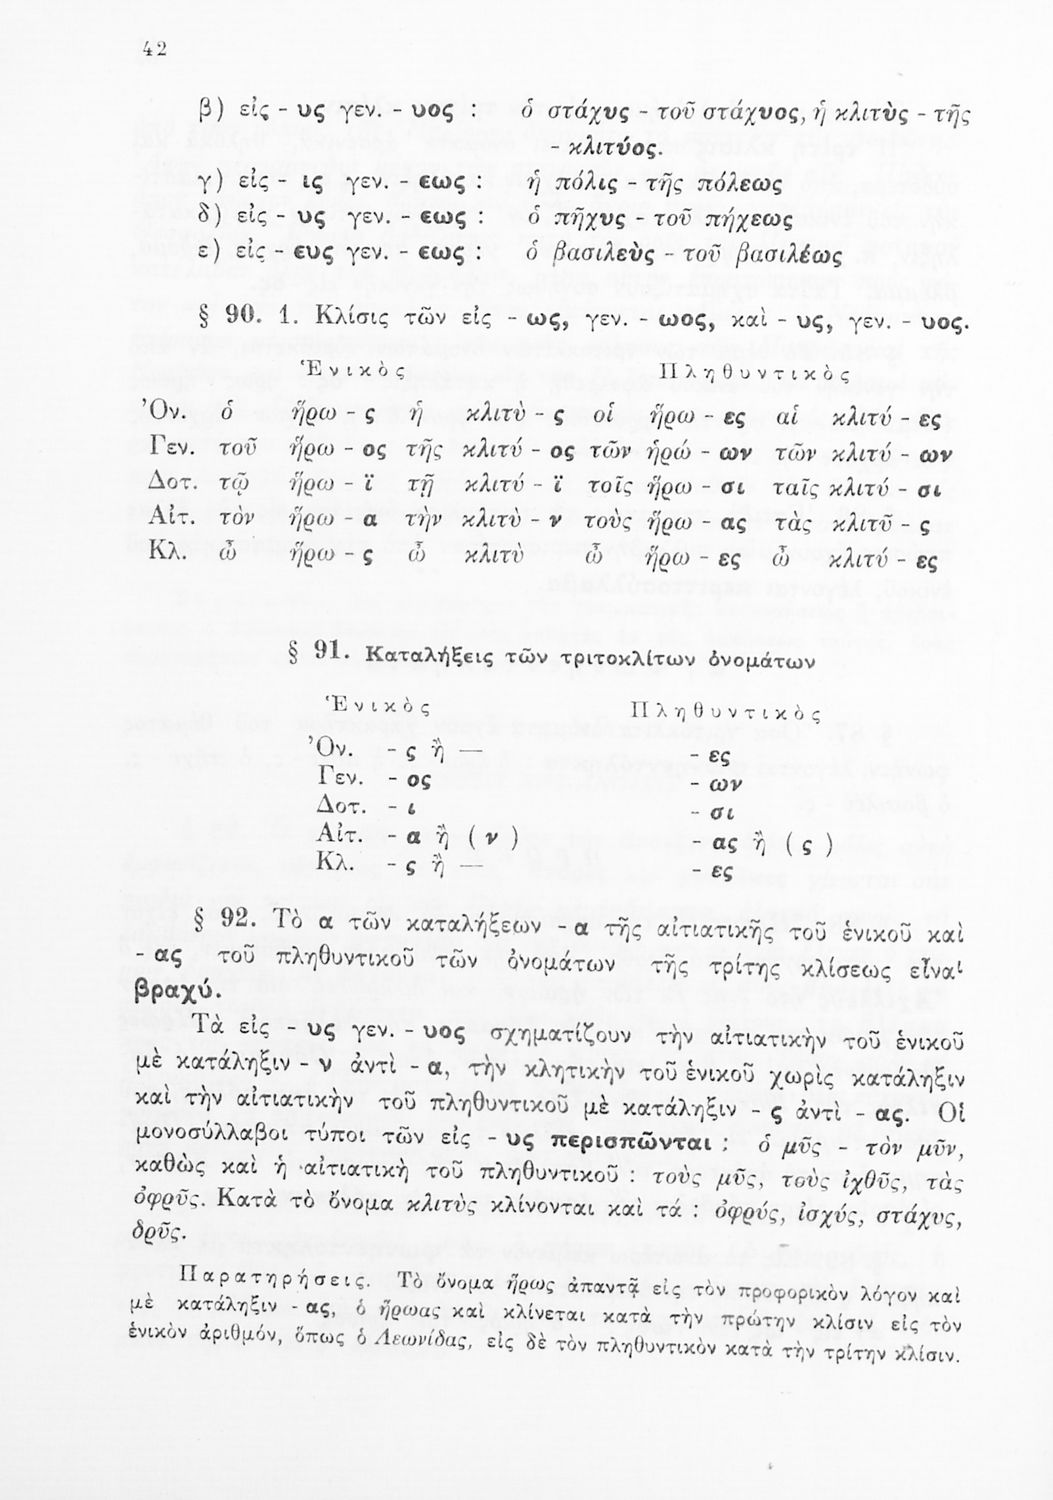 42
β) εἰς - υς γεν. - υος : ὁ στάχυς - τοῦ στάχυος, ἡ κλιτὺς - τῆς
- κλιτύος.
γ) εἰς - ις γεν. - εως : ἡ πόλις - τῆς πόλεως
δ) εἰς - υς γεν. - εως : ὁ πῆχυς - τοῦ πήχεως
ε) εἰς - ευς γεν. - εως : ὁ βασιλεὺς - τοῦ βασιλέως
§ 90. 1. Κλίσις τῶν εἰς - ως, γεν. - ωος, καὶ - υς, γεν. - υος.
Ἑνικὸς Πληθυντικὸς
Ὀν. ὁ ἥρω - ς ἡ κλιτὺ - ς οἱ ἥρω - ες αἱ κλιτύ - ες
Γεν. τοῦ ἥρω - ος τῆς κλιτύ - ος τῶν ἡρώ - ων τῶν κλιτύ - ων
Δοτ. τῷ ἥρω - ϊ τῇ κλιτύ - ϊ τοῖς ἥρω - σι ταῖς κλιτύ - σι
Αἰτ. τὸν ἥρω - α τὴν κλιτὺ - ν τοὺς ἥρω - ας τὰς κλιτῦ - ς
Κλ. ὦ ἥρω - ς ὦ κλιτὺ ὦ ἥρω - ες ὦ κλιτύ - ες
§ 91. Καταλήξεις τῶν τριτοκλίτων ὀνομάτων
Ἑνικὸς Πληθυντικὸς
Ὀν. - ς ἢ — - ες
Γεν. - ος - ων
Δοτ. - ι - σι
Αἰτ. - α ἢ ( ν ) - ας ἢ ( ς )
Κλ. - ς ἢ — - ες
§ 92. Τὸ α τῶν καταλήξεων - α τῆς αἰτιατικῆς τοῦ ἑνικοῦ καὶ
- ας τοῦ πληθυντικοῦ τῶν ὀνομάτων τῆς τρίτης κλίσεως εἶναι
βραχύ.
Τὰ εἰς - υς γεν. - υος σχηματίζουν τὴν αἰτιατικὴν τοῦ ἑνικοῦ
μὲ κατάληξιν - ν ἀντὶ - α, τὴν κλητικὴν τοῦ ἑνικοῦ χωρὶς κατάληξιν
καὶ τὴν αἰτιατικὴν τοῦ πληθυντικοῦ μὲ κατάληξιν - ς ἀντὶ - ας. Οἱ
μονοσύλλαβοι τύποι τῶν εἰς - υς περισπῶνται : ὁ μῦς - τὸν μῦν,
καθὼς καὶ ἡ αἰτιατικὴ τοῦ πληθυντικοῦ : τοὺς μῦς, τοὺς ἰχθῦς, τὰς
ὀφρῦς. Κατὰ τὸ ὄνομα κλιτὺς κλίνονται καὶ τά : ὀφρύς, ἰσχύς, στάχυς,
δρῦς.
Παρατηρήσεις. Τὸ ὄνομα ἥρως ἀπαντᾷ εἰς τὸν προφορικὸν λόγον καὶ
μὲ κατάληξιν - ας, ὁ ἥρωας καὶ κλίνεται κατὰ τὴν πρώτην κλίσιν εἰς τὸν
ἑνικὸν ἀριθμόν, ὅπως ὁ Λεωνίδας, εἰς δὲ τὸν πληθυντικὸν κατὰ τὴν τρίτην κλίσιν.